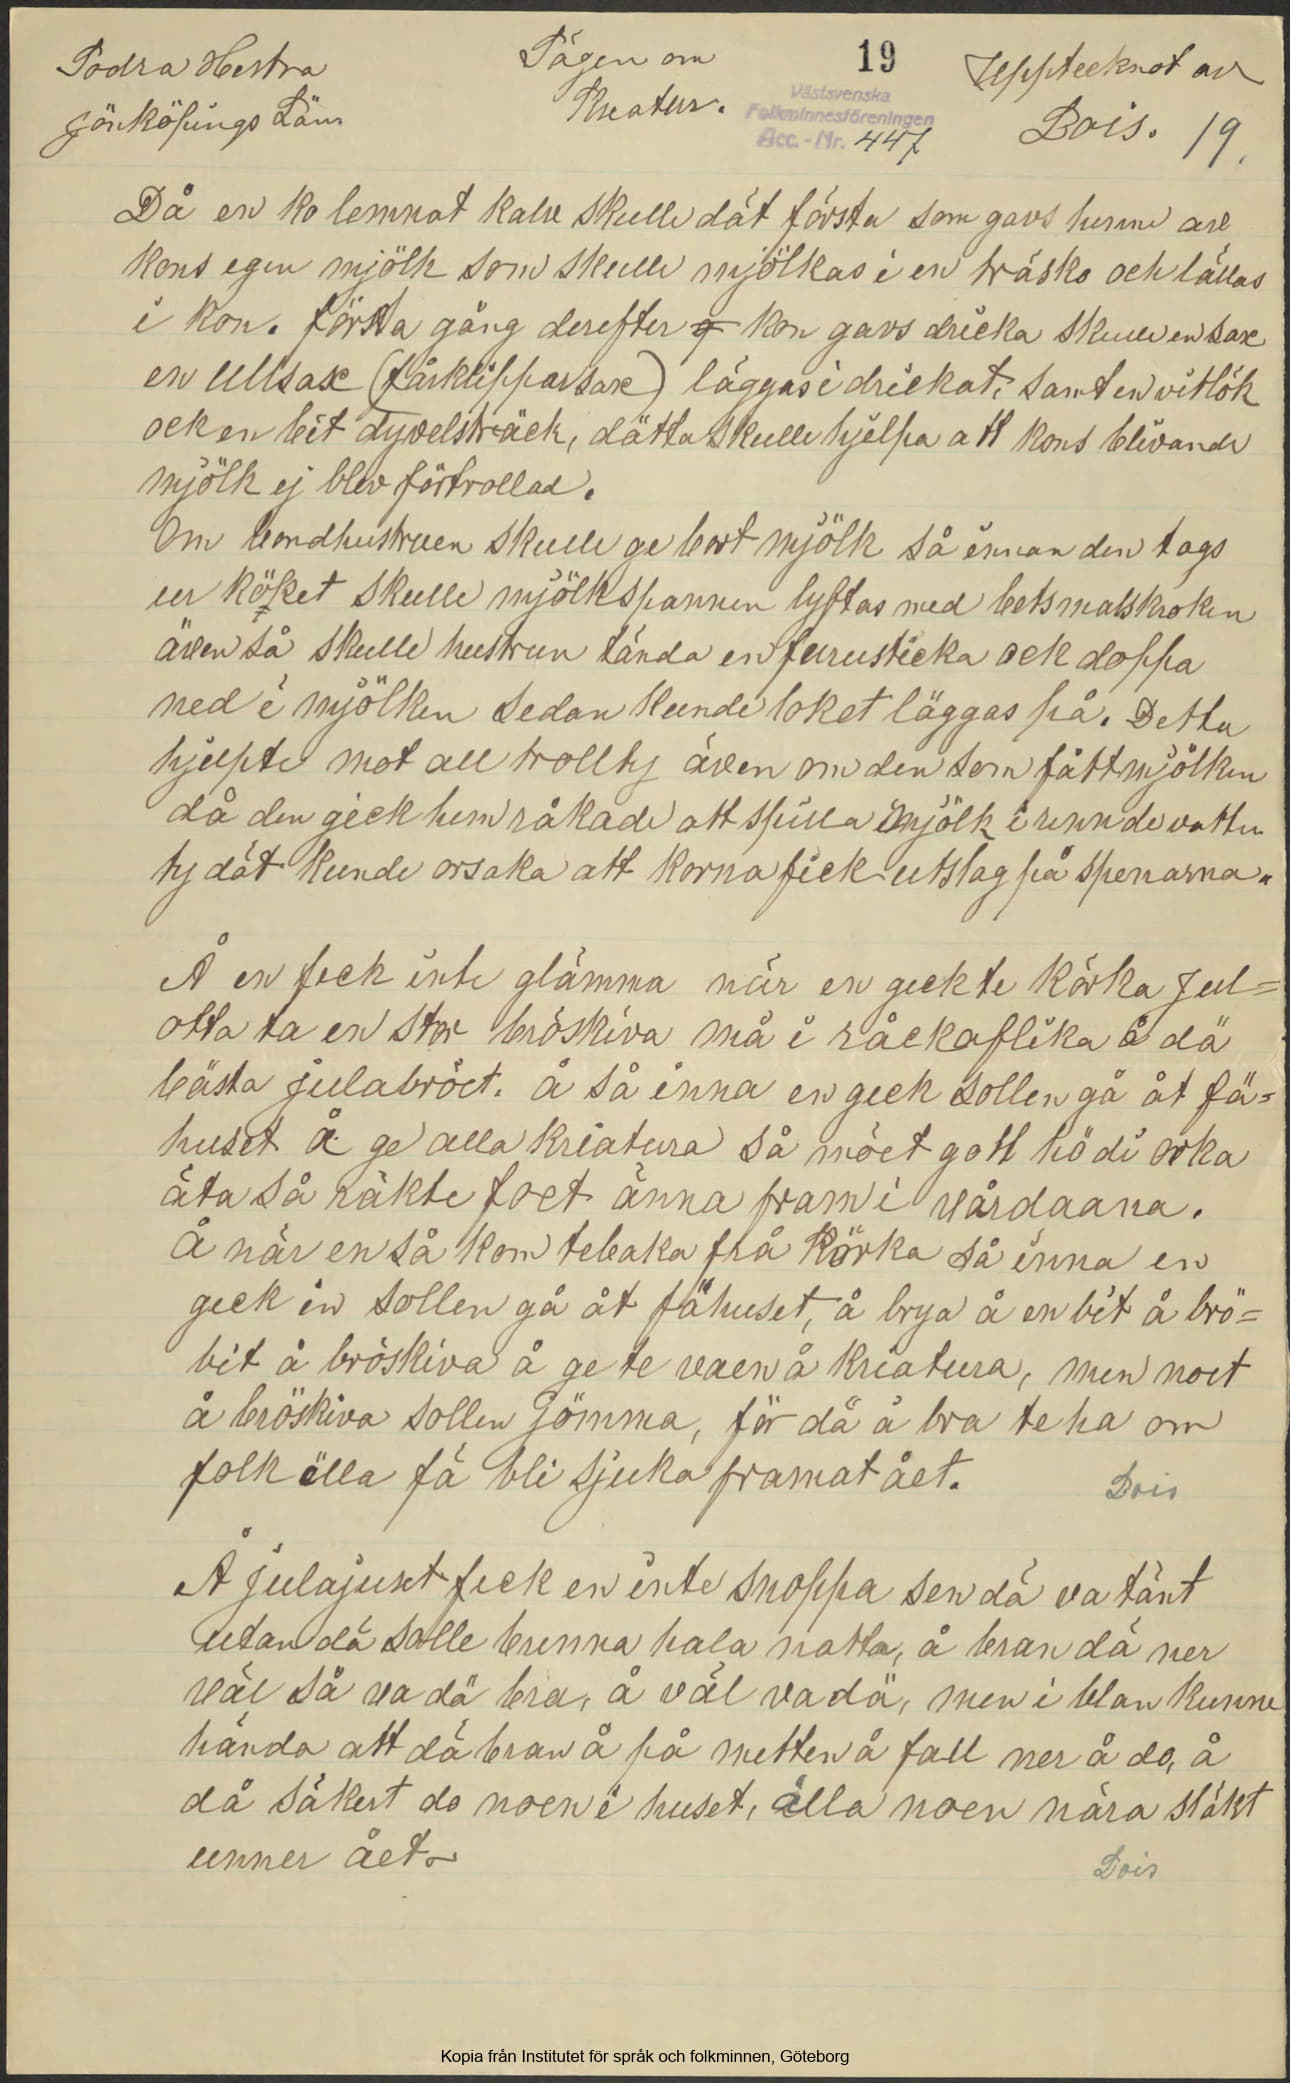 Södra Hestra
Jönköpings Län
Sägen om
Kreatur.
19
Västsvenska
Folkminnesföreningen
Acc.-Nr. 447
Upptecknat av
Dois. 19.
Då en ko lemnat kalv skulle dät första som gavs henne av
kons egen mjölk som skulle mjölkas i en träsko och tällas
i kon. första gång derefter kon gavs dricka skulle en sax
en Ullsax (fårklipparsax) läggas i drickat, samt en vitlök
ock en bit dyvelsträck, dätta skulle hjelpa att kons blivande
mjölk ej blev förtrollad.
Om bondhustruen skulle ge bort mjölk så innan den togs
ur köket skulle mjölkspannen lyftas med betsmalskroken
även så skulle hustrun tända en furusticka ock doppa
ned i mjölken sedan kunde loket läggas på. Detta
hjelpte mot all trolltyj även om den som fått mjölken
då den gick hem råkade att spilla mjölk i rennde vatten
ty dät kunde orsaka att korna fick utslag på spenarna.
Å en feck inte glämma när en geckte körka Jul=
otta ta en stor bröskiva må i råckaflika å dä
bästa julabröet. å så inna en geck sollen gå åt fä=
huset å ge alla kriatura så möet gott hö di orka
äta så räkte foet änna fram i vårdaana.
Å när en så kom tebaka frå Körka så inna en
geck in sollen gå åt fähuset, å brya å en bit å brö=
bit å bröskiva å ge te vaen å kriatura, men noet
å bröskiva sollen jömma, för dä ä bra te ha om
folk älla fä bli sjuka framat ået.
Dois
Å julajuset feck en inte snoppa sen dä va tänt
utan dä solle brenna hala natta, å bran dä ner
väl så va dä bra, å väl va dä, men i blan kunne
hända att dä bran å på metten å fall ner å do, å
då säkert do noen i huset, älla noen nära släkt
unner ået.
Dois
Kopia från Institutet för språk och folkminnen, Göteborg